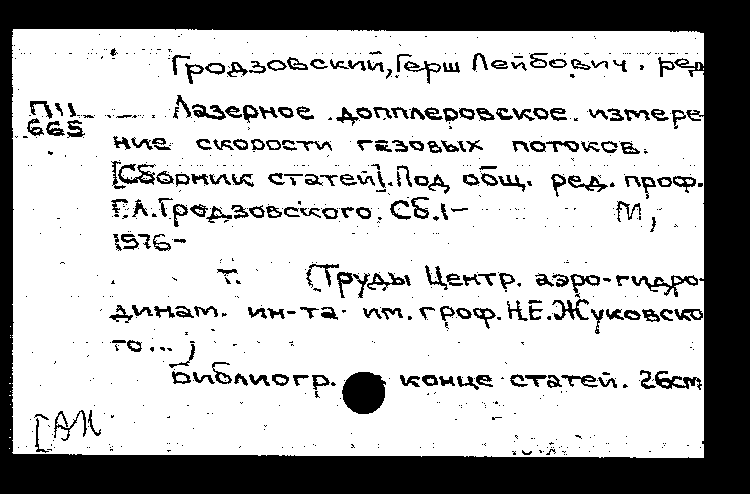 Гродзовский, Герш Лейбович. ред
П11 Лазерное допплеровское измере-
665
ние скорости газовых потоков.
[Сборник статей]. Под общ. ред. проф.
Г.Л.Гродзовского. Сб.1- М,
1976-
т. (Труды Центр. аэро-гидро-
динам. ин-та им. проф. Н.Е.Жуковско
го...)
Библиогр. конце статей. 26cm
[АН